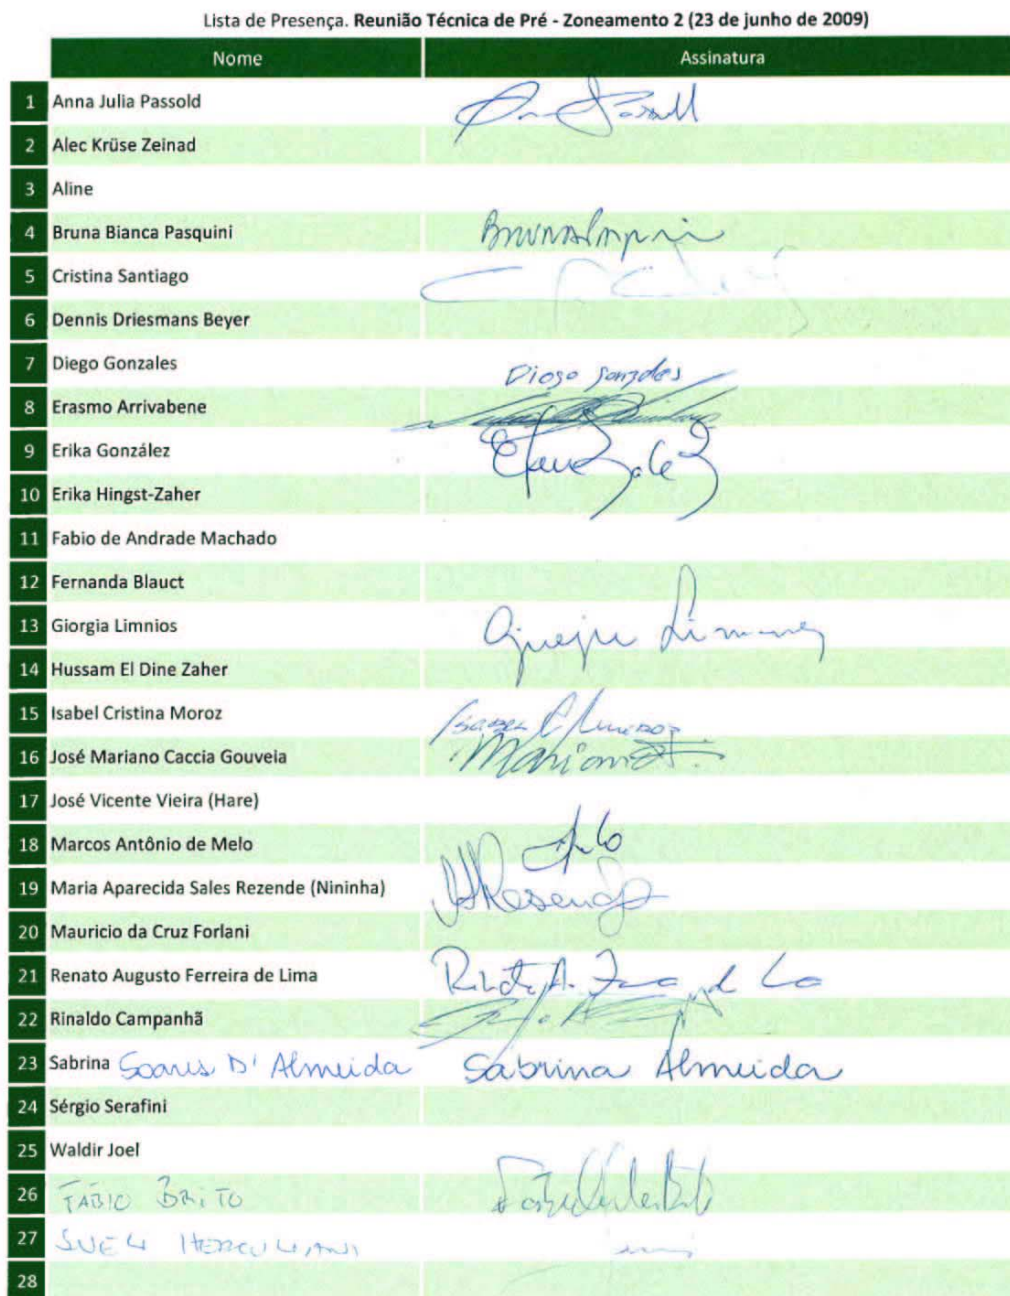 Lista de Presença. Reunião Técnica de Pré - Zoneamento 2 (23 de junho de 2009)
Nome Assinatura
1 Anna Julia Passold
2 Alec Krüse Zeinad
3 Aline
4 Bruna Bianca Pasquini
5 Cristina Santiago
6 Dennis Driesmans Beyer
7 Diego Gonzales Diogo Gonzales
8 Erasmo Arrivabene
9 Erika González
10 Erika Hingst-Zaher
11 Fabio de Andrade Machado
12 Fernanda Blauct
13 Giorgia Limnios
14 Hussam El Dine Zaher
15 Isabel Cristina Moroz
16 José Mariano Caccia Gouveia
17 José Vicente Vieira (Hare)
18 Marcos Antônio de Melo
19 Maria Aparecida Sales Rezende (Nininha) Resende
20 Mauricio da Cruz Forlani
21 Renato Augusto Ferreira de Lima
22 Rinaldo Campanhã
23 Sabrina Soares D'Almeida Sabrina Almeida
24 Sérgio Serafini
25 Waldir Joel
26 FÁBIO BRITO
27 SUELI
28